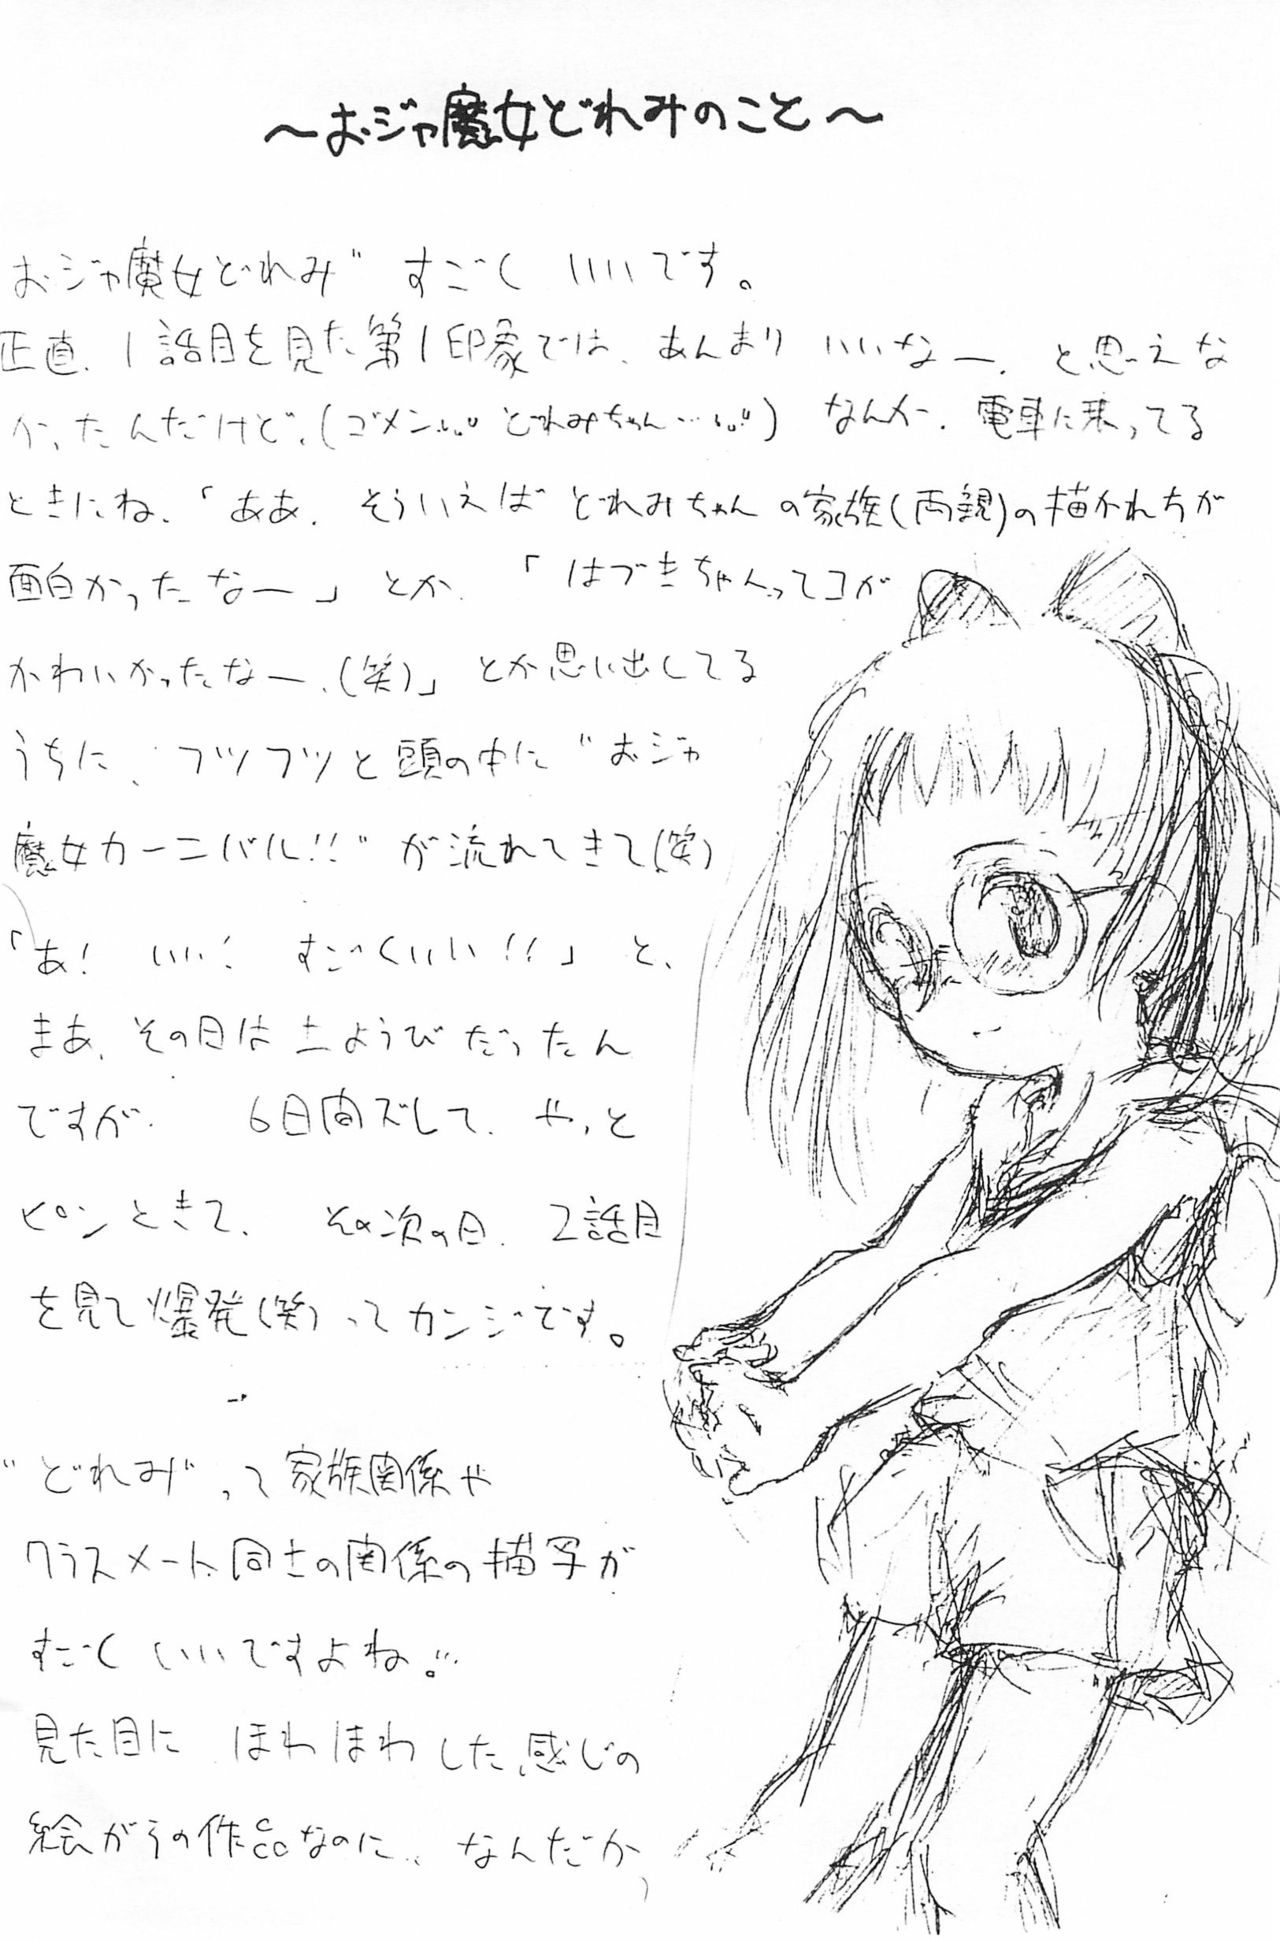 ～おジャ魔女どれみのこと～
おジャ魔女どれみ〝 すごく いいです。
正直、1話目を見た第1印象では、あんまり いいなー、と思えな
かったんだけど、(ゴメン… どれみちゃん…) なんか、電車に乗ってる
ときにね、「ああ、そういえば どれみちゃんの家族(両親)の描かれ方が
面白かったなー」とか、「はづきちゃんってコが
かわいかったなー、(笑)」とか思い出してる
うちに、フツフツと頭の中に〝おジャ
魔女カーニバル!!〟が流れてきて(笑)
「あ! いい! すごくいい!!」と、
まあ、その日は土ようびだったん
ですが、 6日間ズレて、やっと
ピンときて、 その次の日、2話目
を見て爆発(笑)ってカンジです。
〝どれみ〟って家族関係や
クラスメート同士の関係の描写が
すごく いいですよね。…
見た目に ほわほわした感じの
絵がらの作品なのに、なんだか、